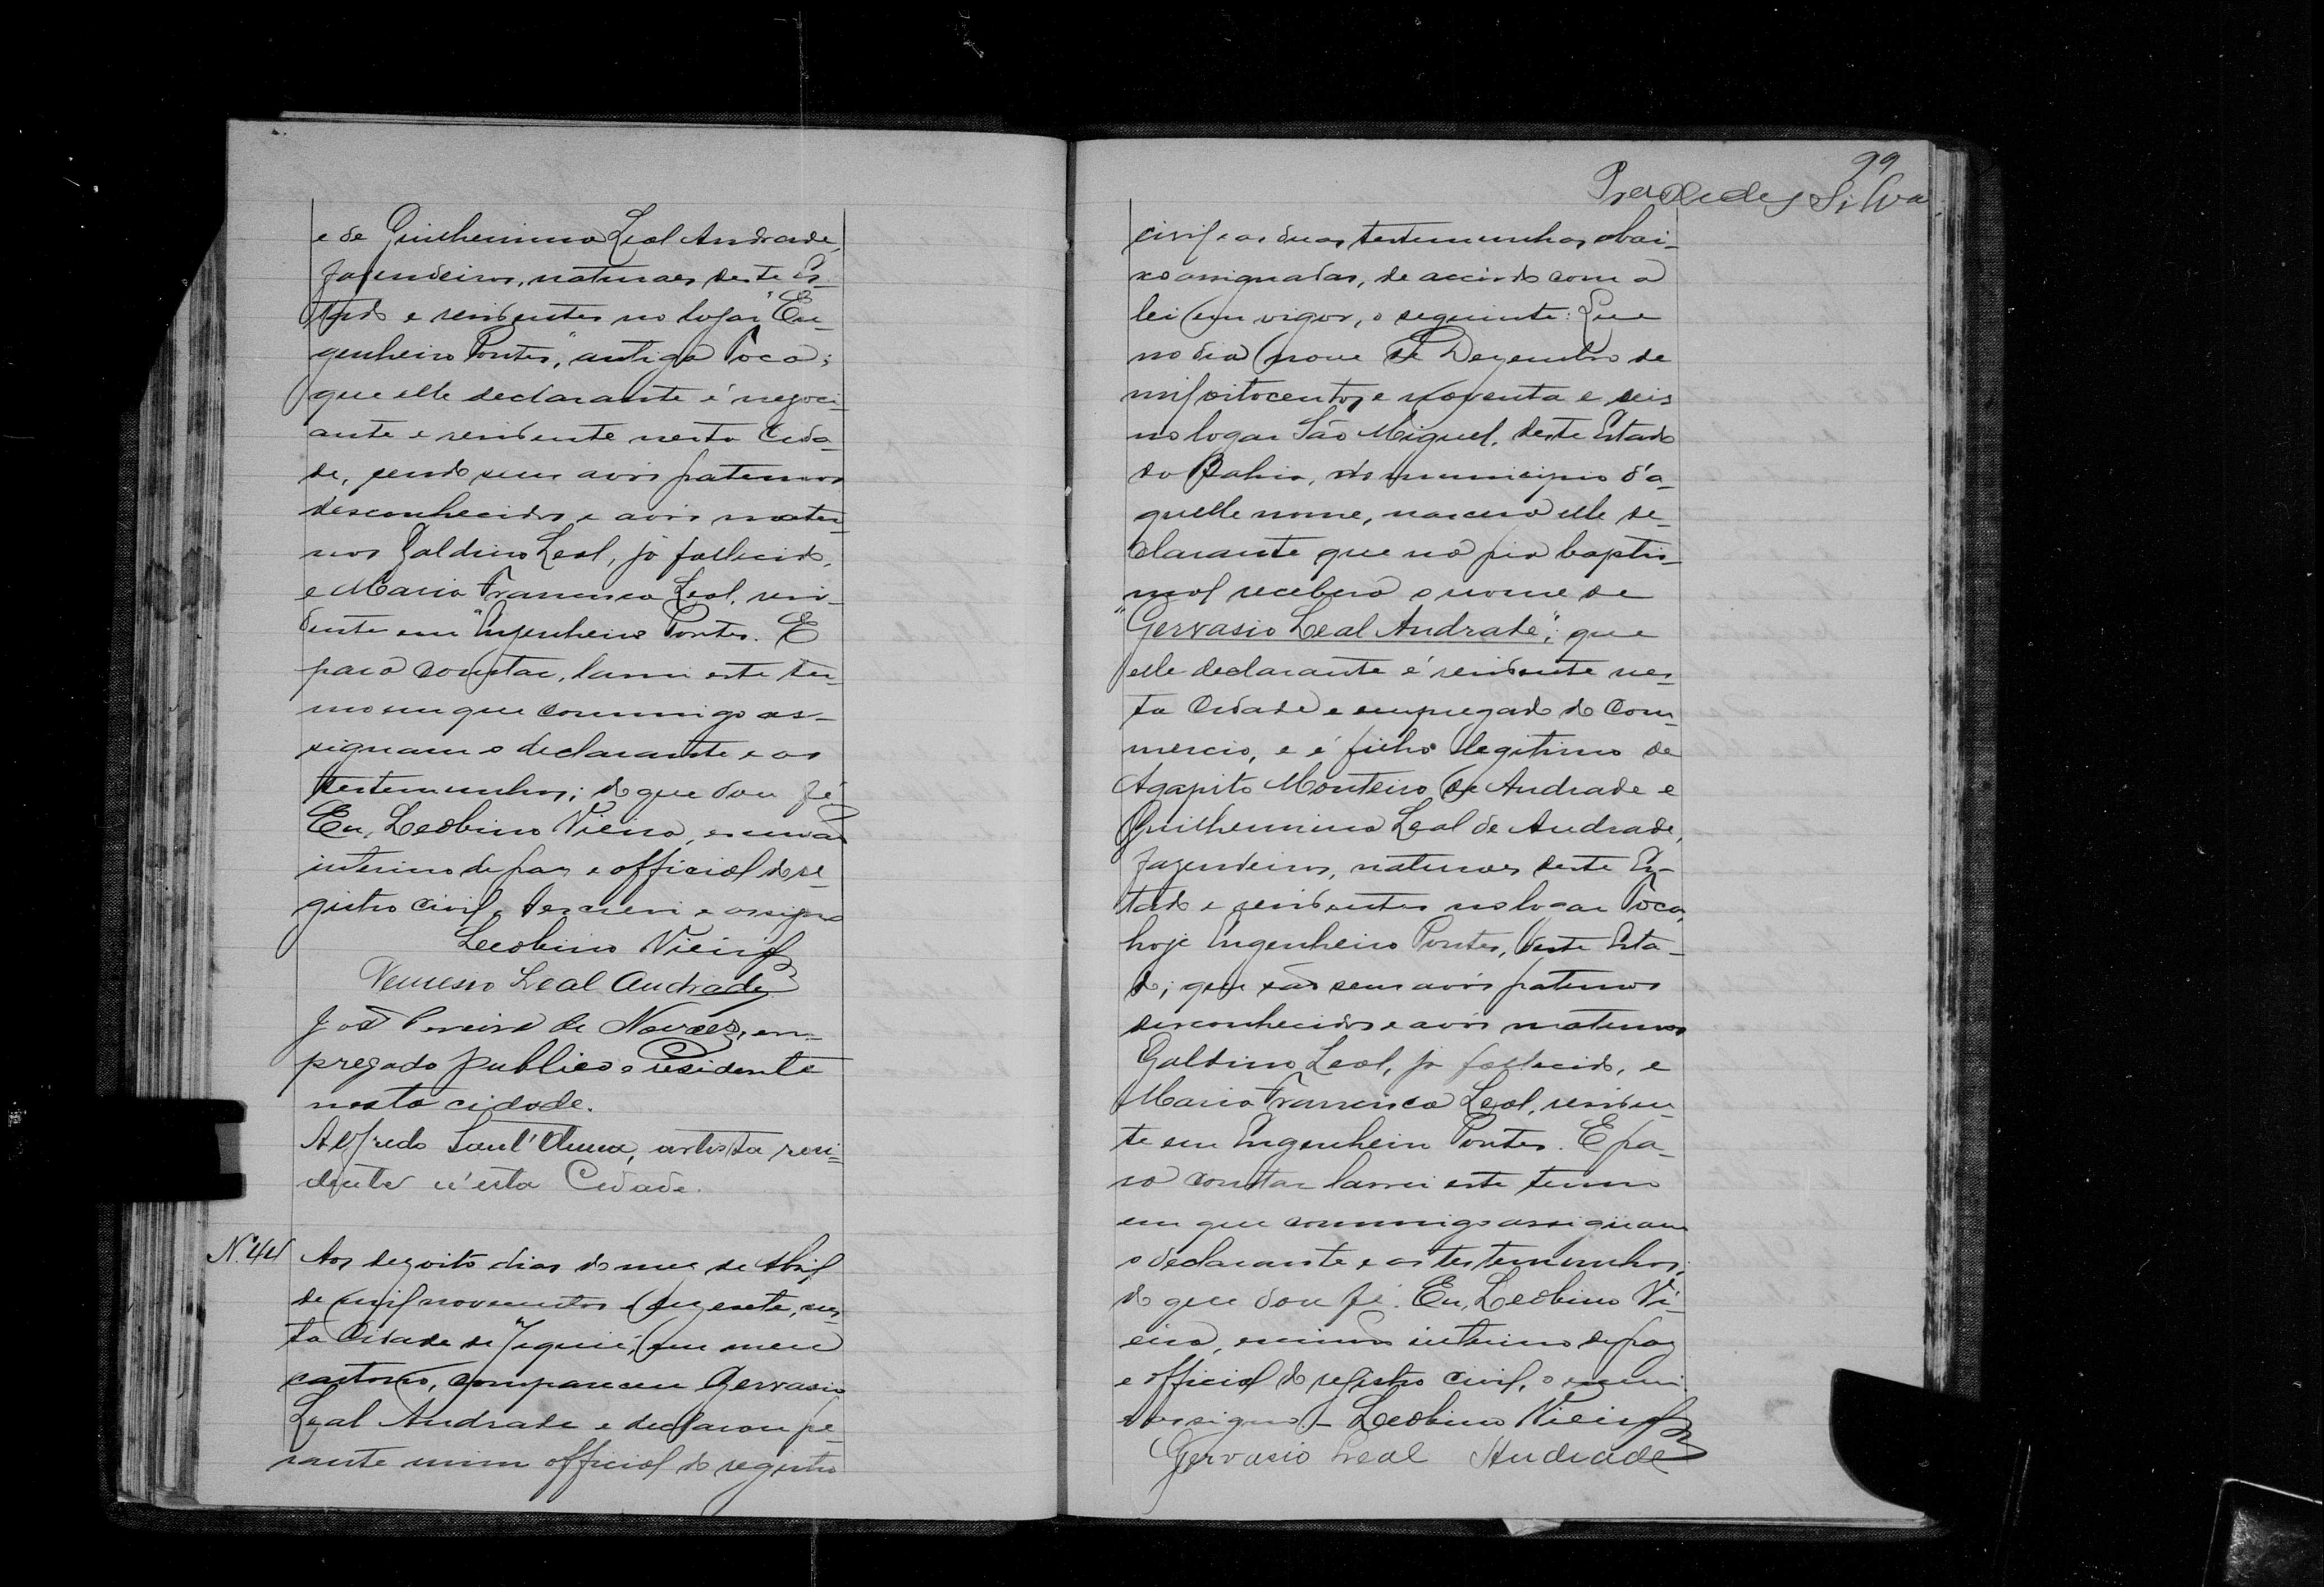 e de Guilhermina Leal Andrade,
fazendeiros, naturaes deste Es-
tado e residentes no logar "En-
genheiro Pontes," antiga Toca;
que elle declarante é negoci-
ante e residente nesta Cida-
de, sendo seus avós paternos
desconhecidos e avós mater-
nos Galdino Leal, já fallecido,
e Maria Francisca Leal, resi-
dente em "Engenheiro Pontes. E
para constar, lavrei este ter-
mo em que commigo as-
signam o declarante e as
testemunhas; do que dou fé
Eu, Leobino Vieira, escrivão
interino de paz e official do re-
gistro civil, o escrevi e assigno
Leobino Vieira
Nemesio Leal Andrade
José Pereira de Novaes, em-
pregado publico e residente
nesta cidade.
Alfredo Sant'Anna, artista resi-
dente n'esta Cidade.
N. 44 Aos dezoito dias do mez de Abril
de mil novecentos e dezesete, nes-
ta Cidade de Jequié, em meu
cartorio, compareceu Gervasio
Leal Andrade e declarou pe-
rante mim official do registro
99
Praxedes Silva
civil e as duas testemunhas abai-
xo assignadas, de accordo com a
lei em vigor, o seguinte: Que
no dia nove de Dezembro de
mil oitocentos e noventa e seis
no logar São Miguel, deste Estado
da Bahia, do municipio d'a-
quelle nome, nascera elle de-
clarante que na pia baptis-
mal recebera o nome de
"Gervasio Leal Andrade"; que
elle declarante é residente nes-
ta Cidade e empregado do Com-
mercio, e é filho legitimo de
Agapito Monteiro de Andrade e
Guilhermina Leal de Andrade,
fazendeiros, naturaes deste Es-
tado e residentes no logar Toca,
hoje Engenheiro Pontes, deste Esta-
do; que são seus avós paternos
desconhecidos e avós maternos
Galdino Leal, já fallecido, e
Maria Francisca Leal, residen-
te em Engenheiro Pontes. E pa-
ra constar lavrei este termo
em que commigo assignam
o declarante e as testemunhas;
do que dou fé. Eu, Leobino Vi-
eira, escrivão interino de paz
e official do registro civil, o escrevi
e assigno. - Leobino Vieira
Gervasio Leal Andrade